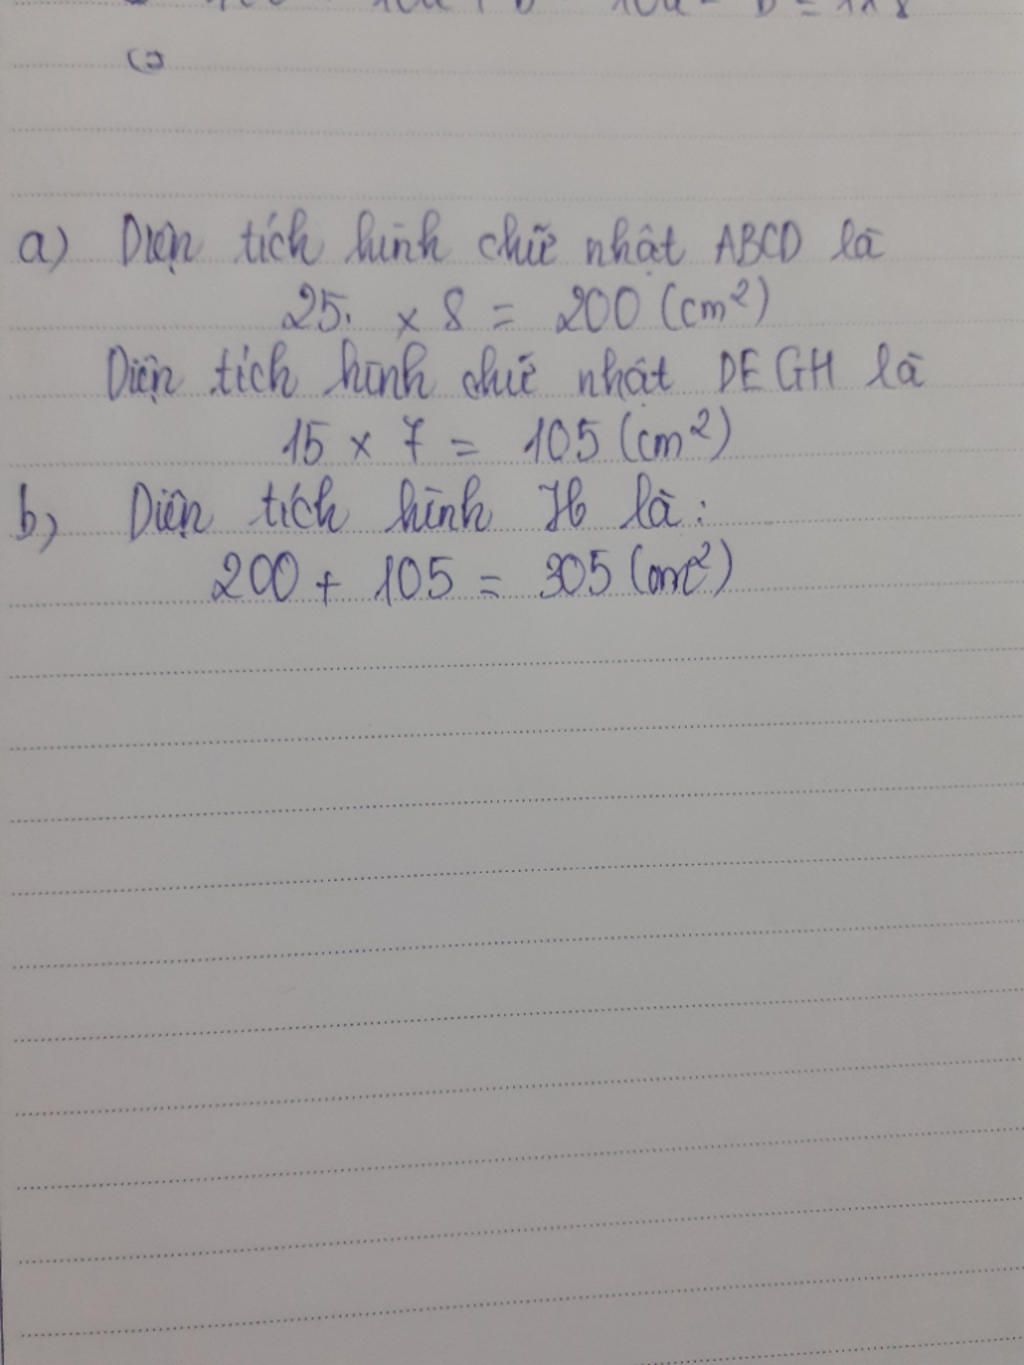 a) Diện tích hình chữ nhật ABCD là
25. x 8 = 200 (cm²)
Diện tích hình chữ nhật DEGH là
15 x 7 = 105 (cm²)
b) Diện tích hình H là:
200 + 105 = 305 (cm²)